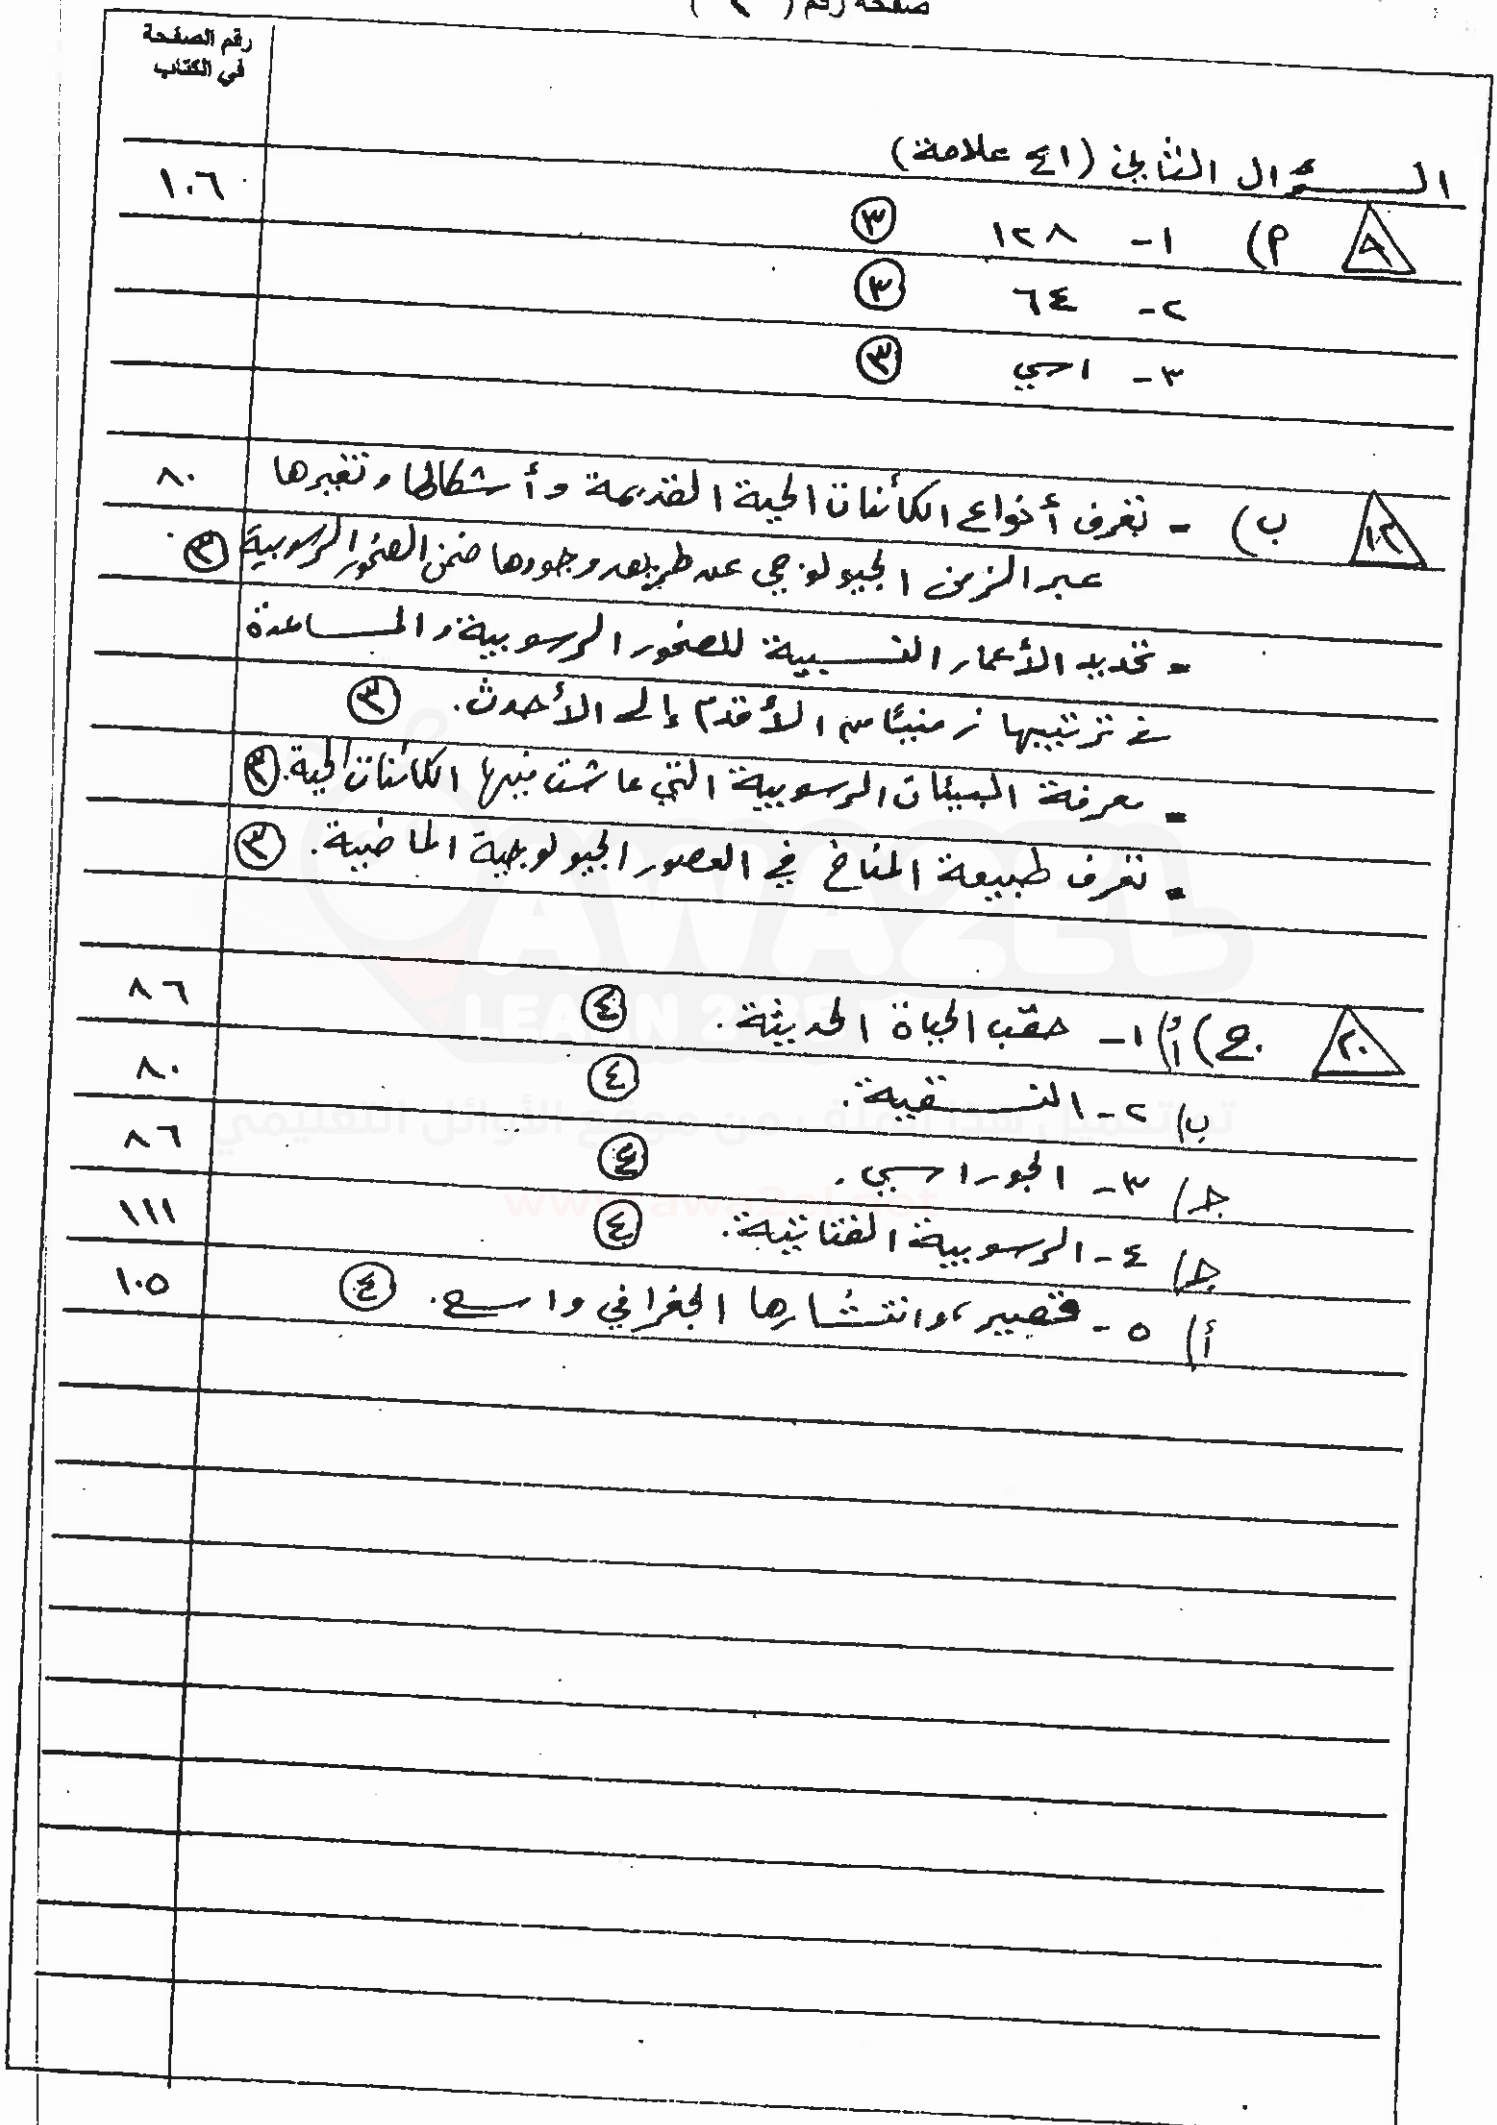 صفحة رقم ( ٢ )
رقم الصفحة
في الكتاب
الســؤال الثاني (٤١ علامة)
٩ م) ١- ١٢٨ ٣ ١٠٦
٢- ٦٤ ٣
٣- أحسي ٣
١٢ ب) - تعرف أنواع الكائنات الحية القديمة وأشكالها وتغيرها ٨٠
عبر الزمن الجيولوجي عن طريق وجودها ضمن الصخور الرسوبية ٣
- تحديد الأعمار النسبية للصخور الرسوبية والمساعدة
في ترتيبها زمنيًا من الأقدم إلى الأحدث. ٣
- معرفة البيئات الرسوبية التي عاشت فيها الكائنات الحية. ٣
- تعرف طبيعة المناخ في العصور الجيولوجية الماضية. ٣
٢٠ ج) ١- حقب الحياة الحديثة. ٤ ٨٦
ب) ٢- النسقية. ٤ ٨٠
ج) ٣- الجوراسي. ٤ ٨٦
ج) ٤- الرسوبية الفتاتية. ٤ ١١١
أ) ٥- قصير، وانتشارها الجغرافي واسع. ٤ ١٠٥
AWA2EL
LEARN 2 BE
تم تحميل هذا الملف من موقع الأوائل التعليمي
www.awa2el.net